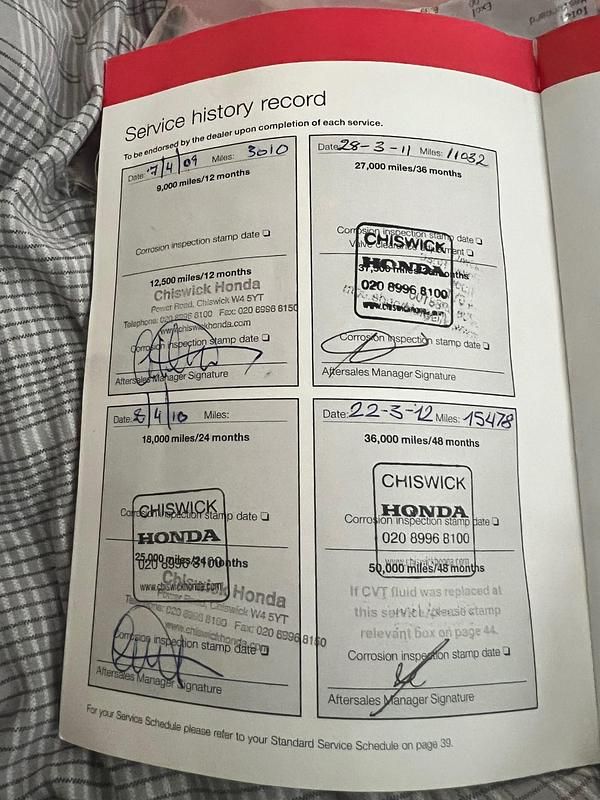 Service history record
To be endorsed by the dealer upon completion of each service.
Date: 7/4/09 Miles: 3010
9,000 miles/12 months
Corrosion inspection stamp date
12,500 miles/12 months
Chiswick Honda
Power Road, Chiswick W4 5YT
Telephone: 020 8996 8100 Fax: 020 8996 8150
www.chiswickhonda.com
Corrosion inspection stamp date
Aftersales Manager Signature
Date: 28-3-11 Miles: 11032
27,000 miles/36 months
Corrosion inspection stamp date
CHISWICK
HONDA
37,500 miles/36 months
020 8996 8100
Corrosion inspection stamp date
Aftersales Manager Signature
Date: 8/4/10 Miles:
18,000 miles/24 months
CHISWICK
Corrosion inspection stamp date
HONDA
25,000 miles/24 months
020 8996 8100
www.chiswickhonda.com
Chiswick Honda
Power Road, Chiswick W4 5YT
Telephone: 020 8996 8100 Fax: 020 8996 8150
www.chiswickhonda.com
Corrosion inspection stamp date
Aftersales Manager Signature
Date: 22-3-12 Miles: 15478
36,000 miles/48 months
CHISWICK
HONDA
Corrosion inspection stamp date
020 8996 8100
www.chiswickhonda.com
50,000 miles/48 months
If CVT fluid was replaced at
this service, please stamp
relevant box on page 44.
Corrosion inspection stamp date
Aftersales Manager Signature
For your Service Schedule please refer to your Standard Service Schedule on page 39.